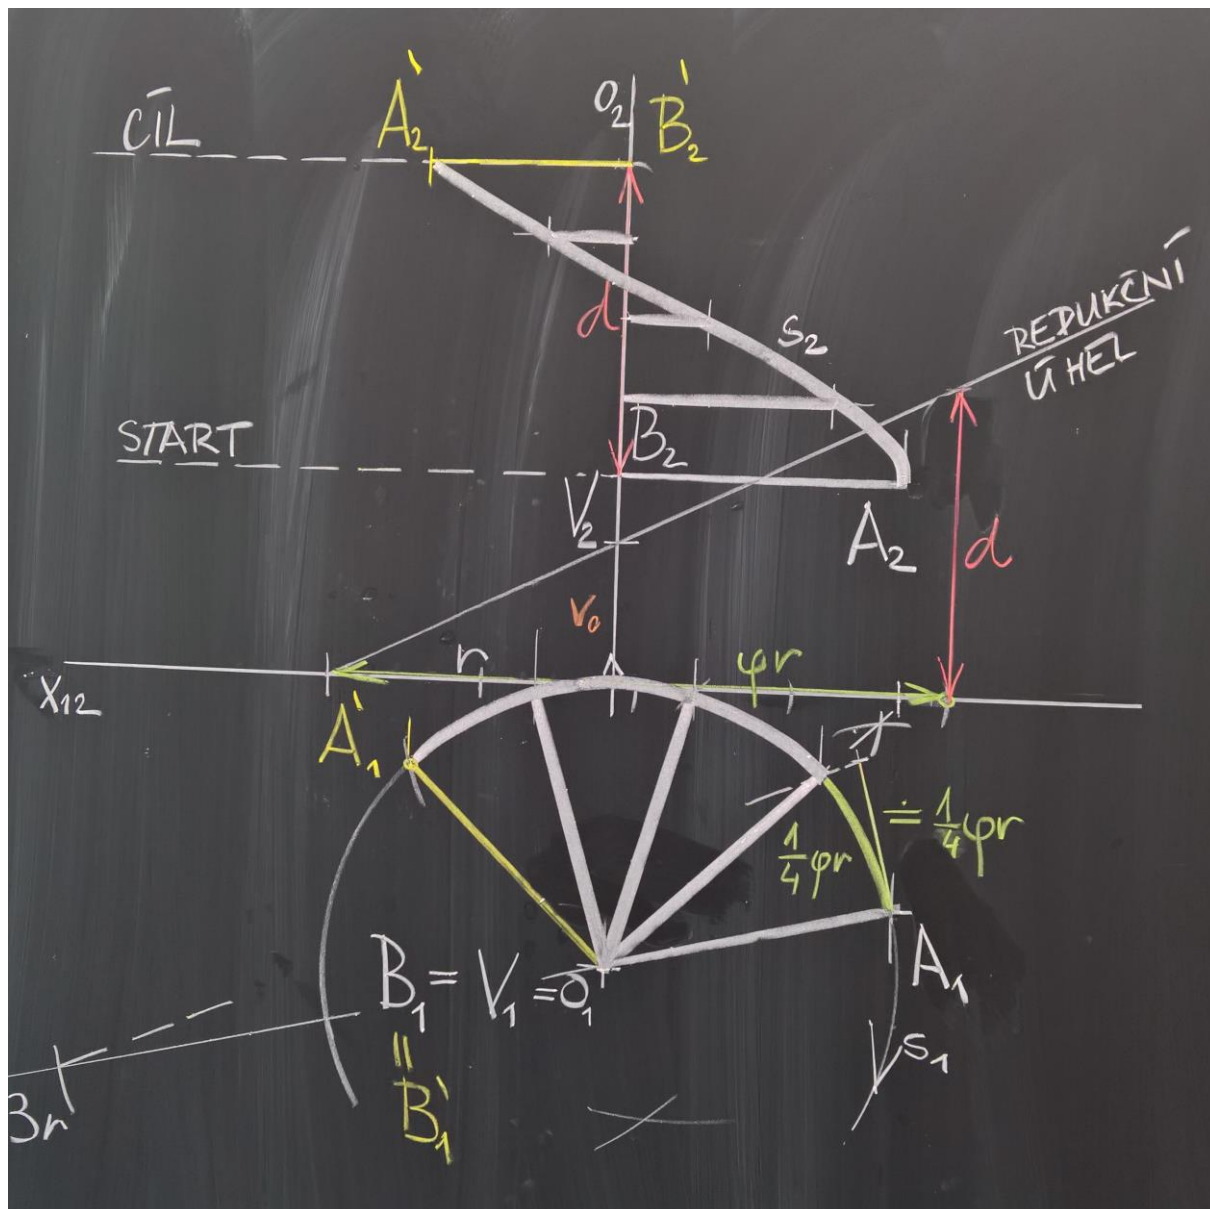 CÍL
A'₂
o₂
B'₂
d
s₂
REDUKČNÍ
ÚHEL
START
B₂
V₂
A₂
d
v₀
r
φr
x₁₂
A'₁
1/4 φr
≐ 1/4 φr
B₁ = V₁ = o₁
A₁
s₁
=
B'₁
3r